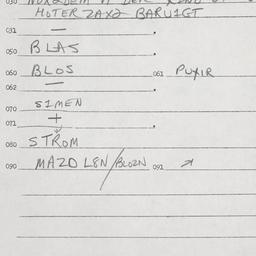 030
HOTER ZAXZ BARV1GT
031 —
050 BLAS
060 BLOS 061 PUXIR
062 —
070 S1MEN
071 +
080 STROM
090 MAZD LEN/BLOZN 091